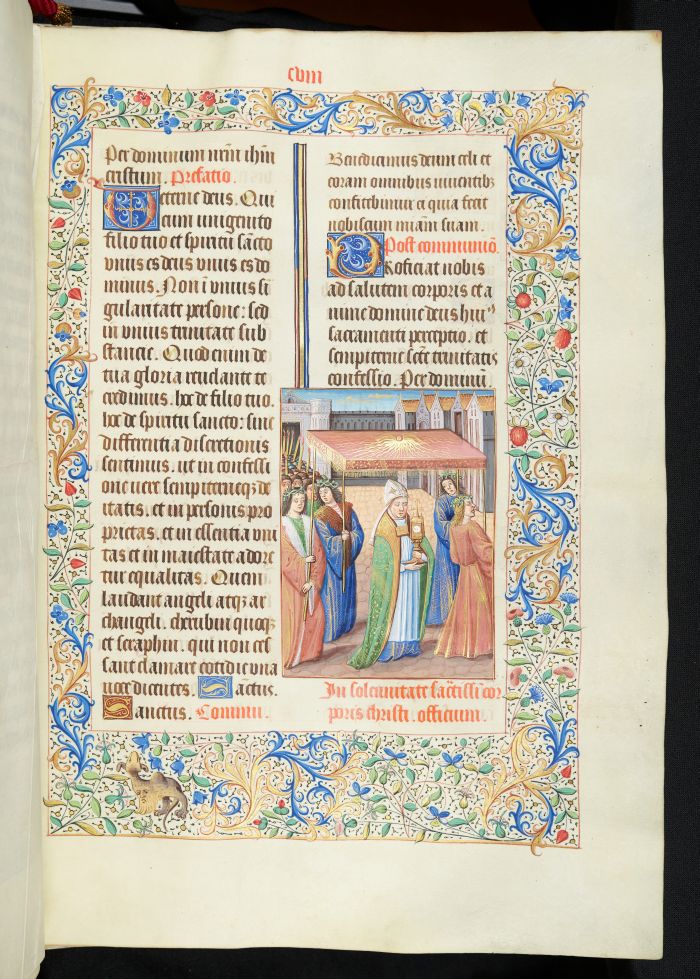 cviii
Per dominum nr̄m ihm̄
cristum. Prefatio.
Eterne deus. Qui
cum unigenito
filio tuo et spiritu sācto
vnus es deus vnus es do
minus. Non ī vnius si
gularitate persone: sed
in vnius trinitate sub
stancie. Quod enim de
tua gloria reuelante te
credimus. hoc de filio tuo.
hoc de spiritu sancto: sine
differentia discretionis
sentimus. ut in confessi
one uere sempiterneqz de
itatis. et in personis pro
prietas. et in essentia vni
tas et in maiestate adore
tur equalitas. Quem
laudant angeli atqz ar
changeli. cherubin quoqz
et seraphin. qui non ces
sant clamare cotidie vna
uoce dicentes. Sanctus.
Sanctus. Commu.
Benedicimus deum celi et
coram omnibus viuentibz
confitebimur ei quia fecit
nobiscum miām suam.
Post communiō.
Proficiat nobis
ad salutem corporis et a
nime domine deus huiꝰ
sacramenti perceptio. et
sempiterne scē̄ trinitatis
confessio. Per dominū.
In solennitate sāctissi cor
poris christi. officium.